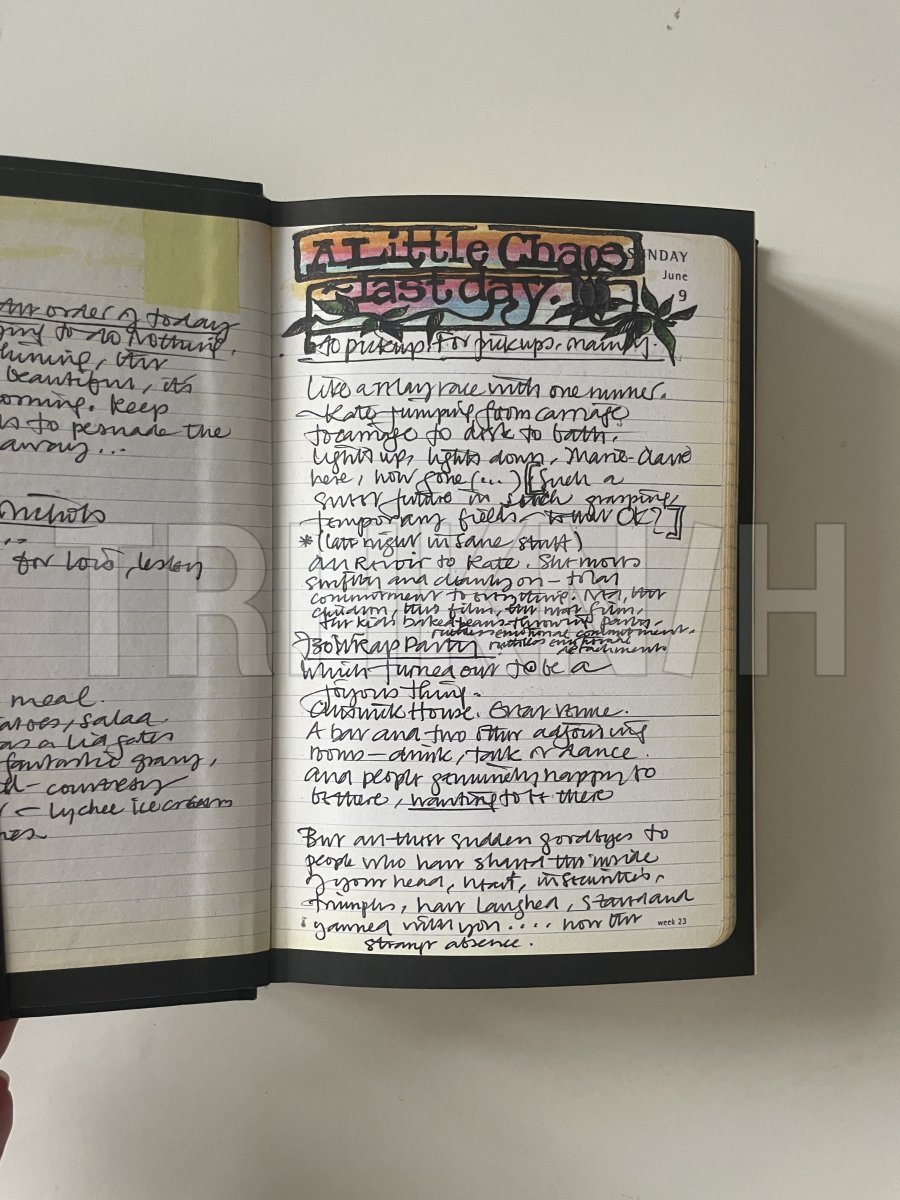 An order of today
to do Nothing.
shining, the
beautiful, it's
morning. Keep
to persuade the
away...
Nichols
for Lois, Lesley
meal.
salad
as a Lidgates
fantastic gravy,
courtesy
← Lychee ice cream
A Little Chaos
~last day.
SUNDAY
June
9
to pickup. For pickups. mainly.
Like a relay race with one runner.
~Kate jumping from carriage
to carriage to desk to bath.
Lights up, lights down, Marie-Claire
here, now gone (...) [Such a
future in such grasping,
temporary fields ~ is that OK?]
*(late night insane stuff)
Au Revoir to Kate. She moves
swiftly and cleanly on — total
commitment to everything. Me, the
children, this film, the next film,
the kids baked beans throwing party.
ruthless emotional commitment.
ruthless emotional
detachment.
To Wrap Party
which turned out to be a
joyous thing.
Chiswick House. Great venue.
A bar and two other adjoining
rooms — drink, talk or dance.
and people genuinely happy to
be there, wanting to be there
But all these sudden goodbyes to
people who have shared the inside
of your head, heart, insecurities,
triumphs, have laughed, stared and
yawned with you .... now the
strange absence.
week 23
TRH
/H